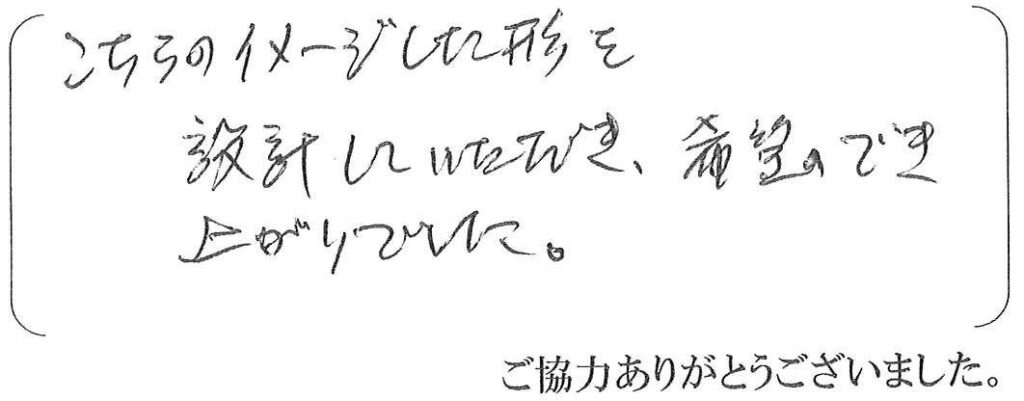 こちらのイメージした形を
設計していただき、希望のでき
上がりでした。
ご協力ありがとうございました。